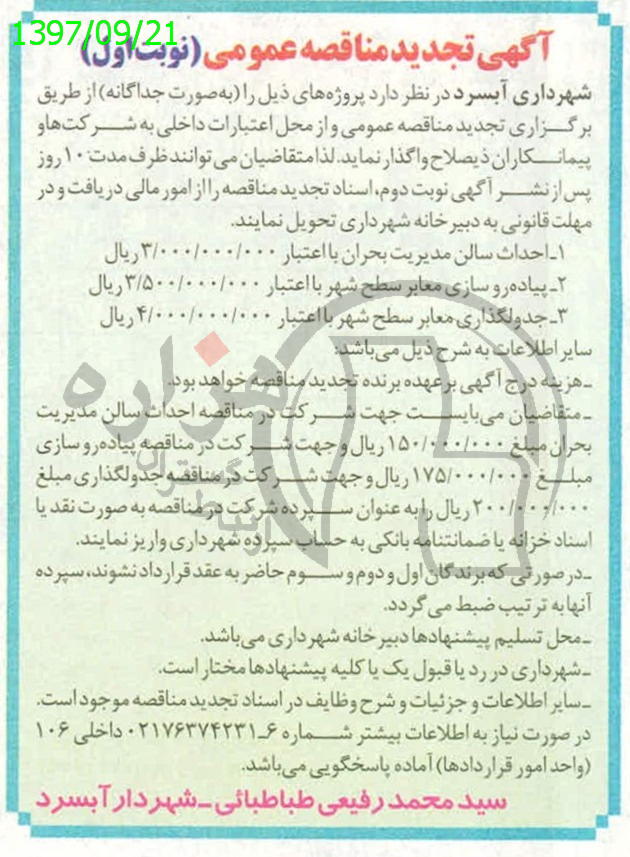 1397/09/21
آگهی تجدید مناقصه عمومی (نوبت اول)
شهرداری آبسرد در نظر دارد پروژه‌های ذیل را (به‌صورت جداگانه) از طریق
برگزاری تجدید مناقصه عمومی و از محل اعتبارات داخلی به شرکت‌ها و
پیمانکاران ذیصلاح واگذار نماید. لذا متقاضیان می‌توانند ظرف مدت ۱۰ روز
پس از نشر آگهی نوبت دوم، اسناد تجدید مناقصه را از امور مالی دریافت و در
مهلت قانونی به دبیرخانه شهرداری تحویل نمایند.
۱ـ احداث سالن مدیریت بحران با اعتبار ۳/۰۰۰/۰۰۰/۰۰۰ ریال
۲ـ پیاده‌رو سازی معابر سطح شهر با اعتبار ۳/۵۰۰/۰۰۰/۰۰۰ ریال
۳ـ جدولگذاری معابر سطح شهر با اعتبار ۴/۰۰۰/۰۰۰/۰۰۰ ریال
سایر اطلاعات به شرح ذیل می‌باشد:
ـ هزینه درج آگهی بر عهده برنده تجدید مناقصه خواهد بود.
ـ متقاضیان می‌بایست جهت شرکت در مناقصه احداث سالن مدیریت
بحران مبلغ ۱۵۰/۰۰۰/۰۰۰ ریال و جهت شرکت در مناقصه پیاده‌رو سازی
مبلغ ۱۷۵/۰۰۰/۰۰۰ ریال و جهت شرکت در مناقصه جدولگذاری مبلغ
۲۰۰/۰۰۰/۰۰۰ ریال را به عنوان سپرده شرکت در مناقصه به صورت نقد یا
اسناد خزانه یا ضمانتنامه بانکی به حساب سپرده شهرداری واریز نمایند.
ـ در صورتی که برندگان اول و دوم و سوم حاضر به عقد قرارداد نشوند، سپرده
آنها به ترتیب ضبط می‌گردد.
ـ محل تسلیم پیشنهادها دبیرخانه شهرداری می‌باشد.
ـ شهرداری در رد یا قبول یک یا کلیه پیشنهادها مختار است.
ـ سایر اطلاعات و جزئیات و شرح وظایف در اسناد تجدید مناقصه موجود است.
در صورت نیاز به اطلاعات بیشتر شماره ۶ـ۰۲۱۷۶۳۷۴۲۳۱ داخلی ۱۰۶
(واحد امور قراردادها) آماده پاسخگویی می‌باشد.
سید محمد رفیعی طباطبائی ـ شهردار آبسرد
هزاره